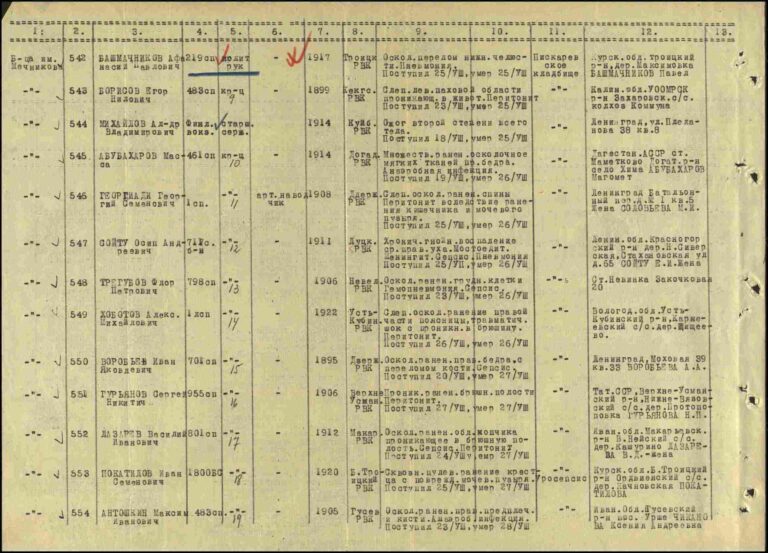 1: 2. 3. 4. 5. 6. 7. 8. 9. 10. 11. 12. 13.
Б-ца им. 542 БАШМАЧНИКОВ Афа 219сп полит - 1917 Троицк Оскол.перелом нижн.челюс- Пискарев Курск.обл.Троицкий
Мечникова насий Павлович рук РВК ти.Пневмония. ское р-н,дер.Максимовка
Поступил 25/УШ,умер 25/УШ кладбище БАШМАЧНИКОВ Павел
-"- 543 БОРИСОВ Егор 483сп кр-ц - 1899 Слеп.лев.паховой области -"- Калин.обл.
Нилович 9 РВК проникающ.в живот.Перитонит р-н Захаровск.с/с.
Поступил 23/УШ,умер 25/УШ колхоз Коммуна
-"- 544 МИХАЙЛОВ Ал-др Финл. старш. 1914 Куйб. Ожог второй степени всего -"- Ленинград,ул.Плеха-
Владимирович вокз. серж. РВК тела. нова 38 кв.8
Поступил 18/УШ,умер 25/УШ
-"- 545 АБУБАХАРОВ Мас- 461сп кр-ц - 1914 Догад. Множеств.ранен.осколочное -"- Дагестан.АССР ст.
са 10 РВК мягких тканей пр.бедра. Маметково Догат.р-н
Анаэробная инфекция. село Хима АБУБАХАРОВ
Поступил 19/УШ,умер 26/УШ Магомет
-"- 546 ГЕОРГИАДИ Геор- -"- арт.навод 1908 Дзерж. Слеп.оскол.ранен.спины -"- Ленинград Батальон-
гий Семенович 1сп. 11 чик РВК Перитонит вследствие ране- ный
ния кишечника и мочевого Жена СОЛОВЬЕВА М.И.
пузыря.
Поступил 25/УШ,умер 26/УШ
-"- 547 СОЙТУ Осип Анд- -"- - 1911 Луцк. Хронич.гнойн.воспаление -"- Ленин.обл.Красногор
реевич б-н 12 РВК ср.прав.уха.Мостоедит. ский р-н дер.Н.Сивер
Менингит.Сепсис.Пневмония ская,Стахановская ул
Поступил 25/УШ,умер 26/УШ д.65 СОЙТУ Е.И.жена
-"- 548 ТРЕГУБОВ Флор 798сп -"- - 1906 Невел. Оскол.ранен.грудн.клетки -"- Ст.Невинка Закочковая
Петрович 13 РВК Гемопневмония.Сепсис. 20
Поступил 23/УШ,умер 26/УШ
-"- 549 ХОБОТОВ Алекс. 1лсп -"- - 1922 Усть- Слеп.оскол.ранение правой -"- Вологод.обл.Усть-
Михайлович 14 Кубин. части поясницы,травматич. Кубинский р-н,
РВК шок с проникн.в брюшину. с/с.дер.
Перитонит. во.
Поступил 26/УШ,умер 26/УШ
-"- 550 ВОРОБЬЕВ Иван 701сп -"- - 1895 Дзерж. Оскол.ранен.прав.бедра.с -"- Ленинград,Моховая 39
Яковлевич 15 РВК переломом кости.Сепсис. кв.33 ВОРОБЬЕВА А.А.
Поступил 20/УШ,умер 27/УШ
-"- 551 ГУРЬЯНОВ Сергей 955сп -"- - 1906 Верхне Проник.ранен.брюшн.полости -"- Тат.ССР,Верхне-Услан
Никитич 16 Услан. Перитонит. ский р-н,Нижне-Вязов
РВК Поступил 27/УШ,умер 27/УШ ский с/с.дер.Протопо-
повка ГУРЬЯНОВА Н.П.
-"- 552 ЛАЗАРЕВ Василий 801сп -"- - 1912 Макар. Оскол.ранен.обл.копчика -"- Иван.обл.Макарьевск.
Иванович 17 РВК проникающее в брюшную по- р-н В.Нейский с/с.
лость.Сепсис.Перитонит дер.Кашурино ЛАЗАРЕ-
Поступил 24/УШ,умер 27/УШ ВА В.Д.-жена
-"- 553 ПОКАТИЛОВ Иван 1800БС -"- - 1920 Б.Тро- Сквозн.пулев.ранение крест -"- Курск.обл.Б.Троицкий
Семенович 18 ицкий ца с поврежд.мочев.пузыря.Уросепсис р-н с/с.
РВК Поступил 25/УШ,умер 27/УШ дер. ПОКА-
ТИЛОВА
-"- 554 АНТОШКИН Максим 483сп. -"- - 1905 Гусев Оскол.ранен.прав.предплеч. -"- Иван.Обл.Гусевский
Иванович 19 РВК и кисти.Анаэроб.инфекция. р-н пос.Урше
Поступил 23/УШ,умер 28/УШ ВА Ксения Андреевна